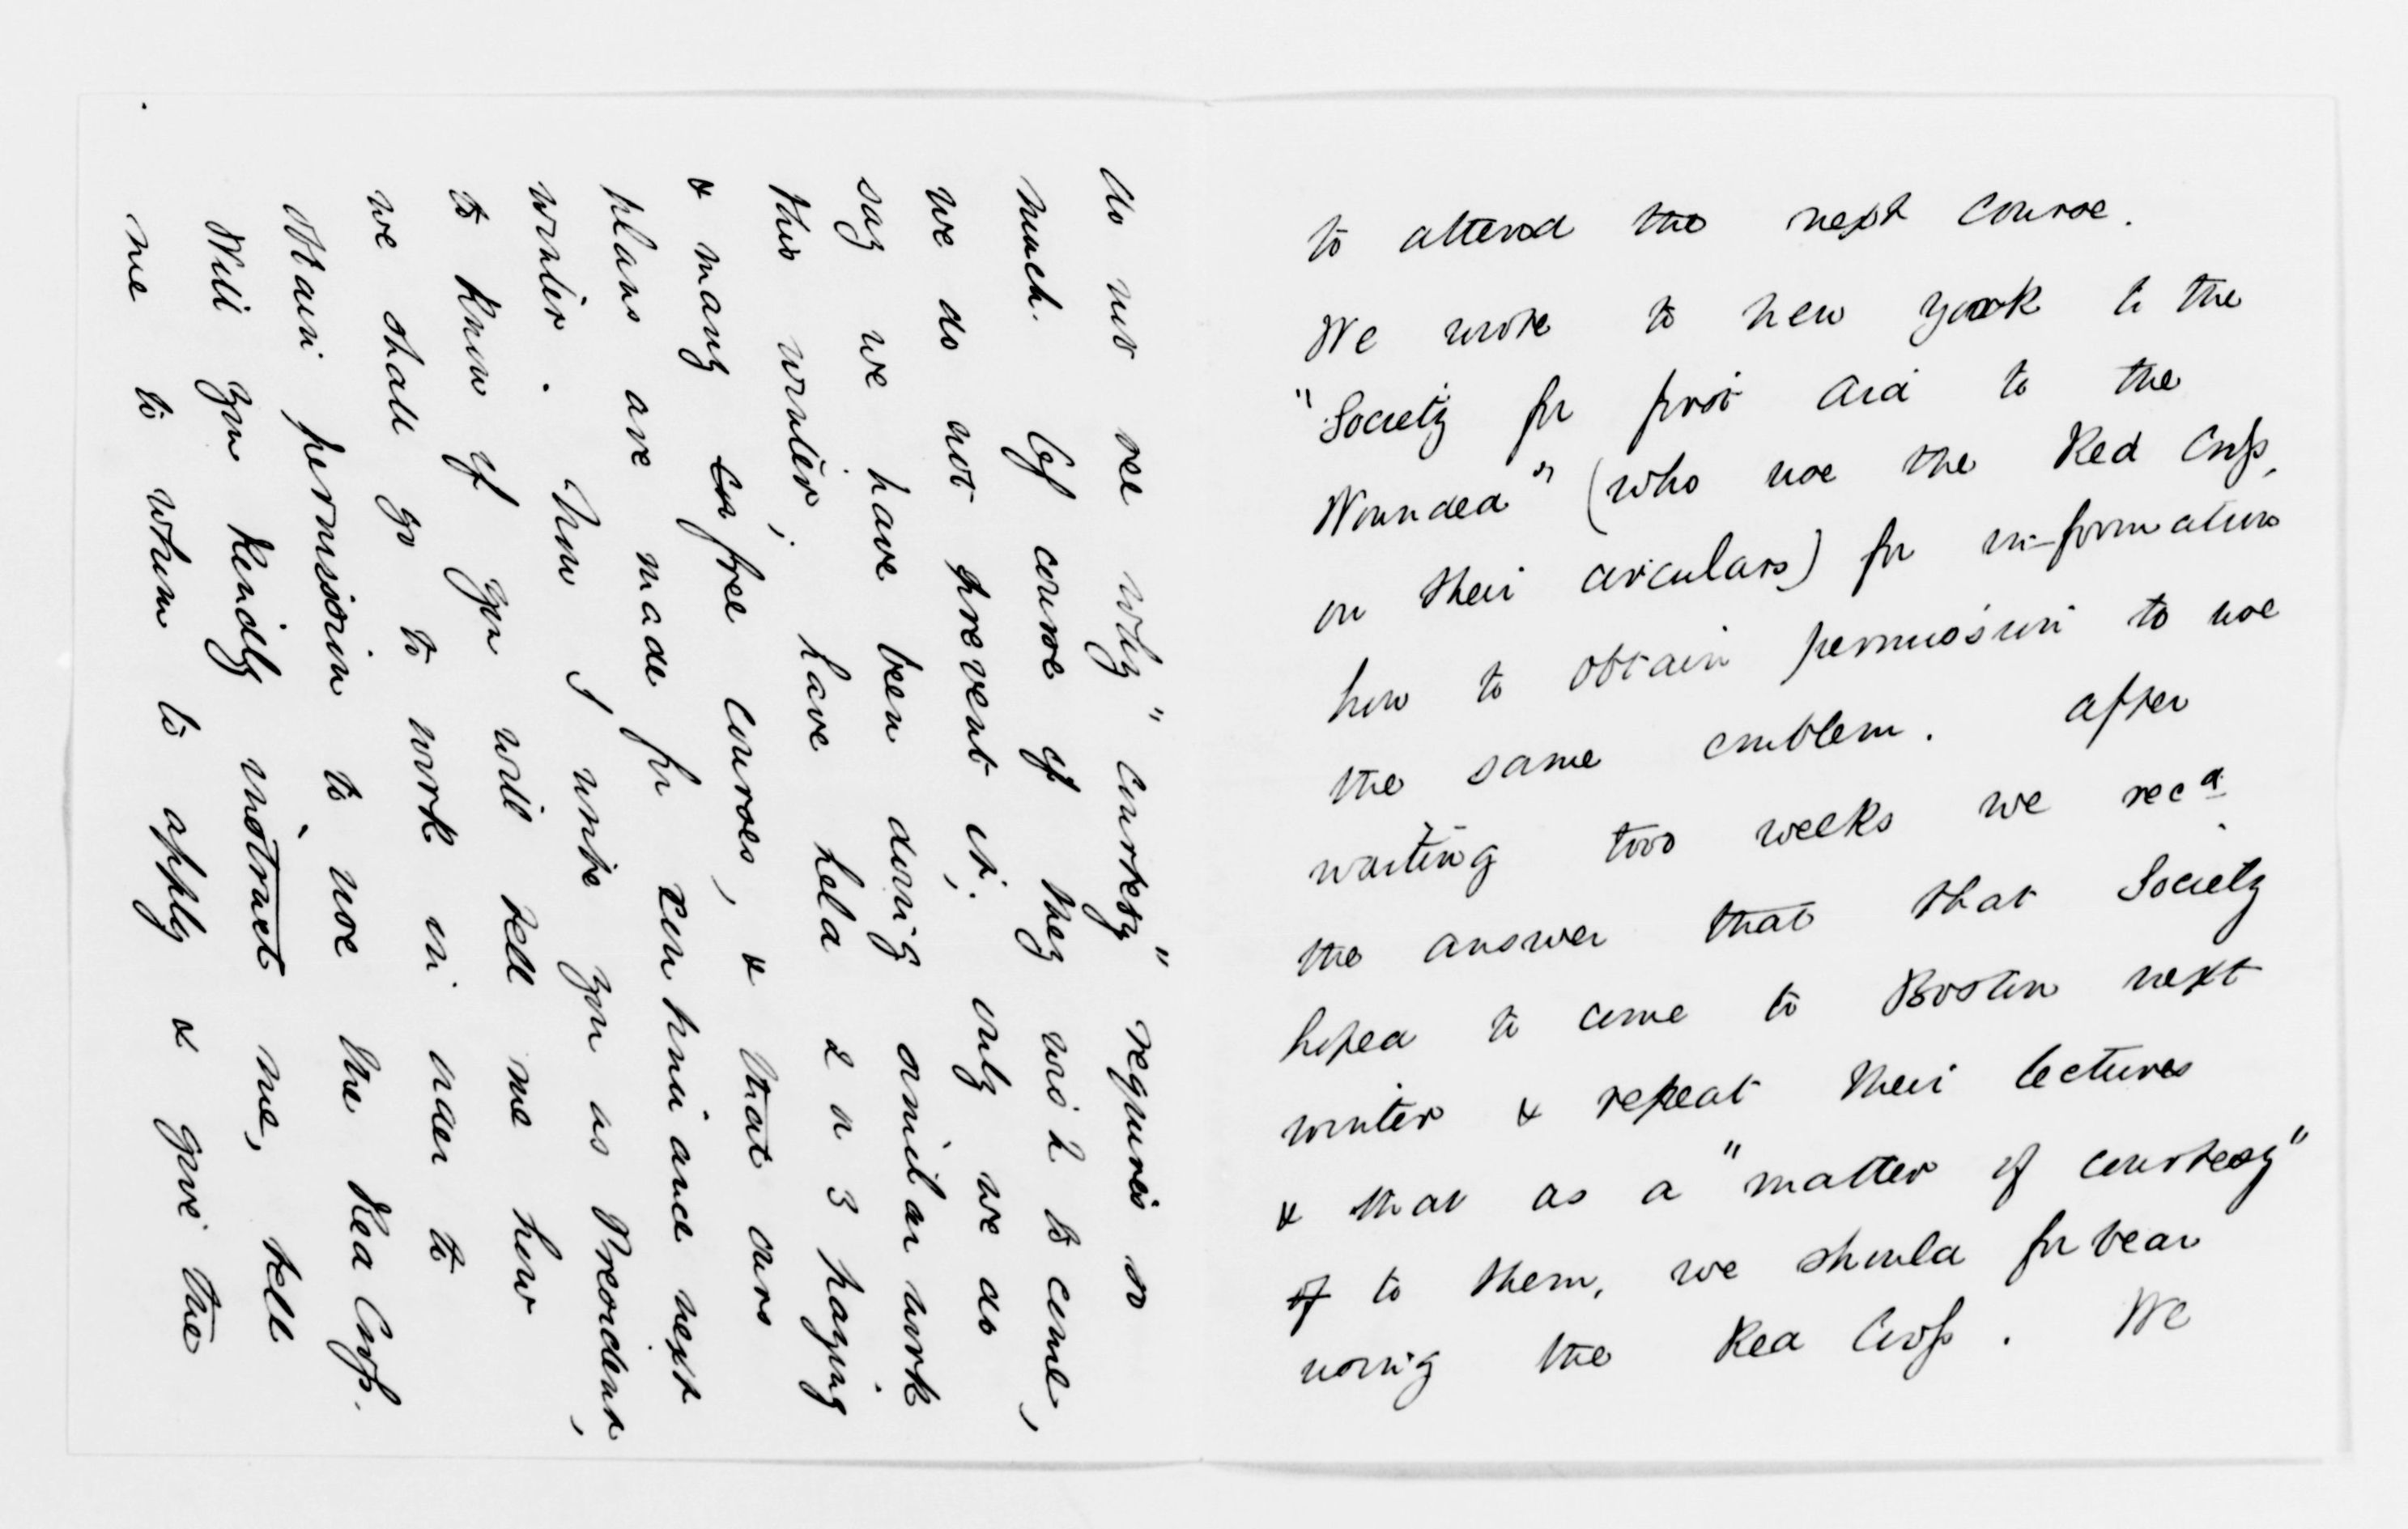 to attend the next course.
We wrote to New York to the
"Society for first Aid to the
Wounded" (who use the Red Cross,
on their circulars) for in-formation
how to obtain permission to use
the same emblem. After
waiting two weeks we recd.
the answer that that Society
hoped to come to Boston next
winter & repeat their lectures
& that as a "matter of courtesy"
of to them, we should forbear
using the Red Cross. We
do not see why "courtesy" requires so
much. Of course if they wish to come,
we do not prevent it; only we do
say we have been doing similar work
this winter; have held 2 or 3 paying
& many free courses, & that ours
plans are made for continuance next
winter. Now I write you as President,
to know if you will tell me how
we shall go to work in order to
obtain permission to use the Red Cross.
Will you kindly instruct me, tell
me to whom to apply & give the